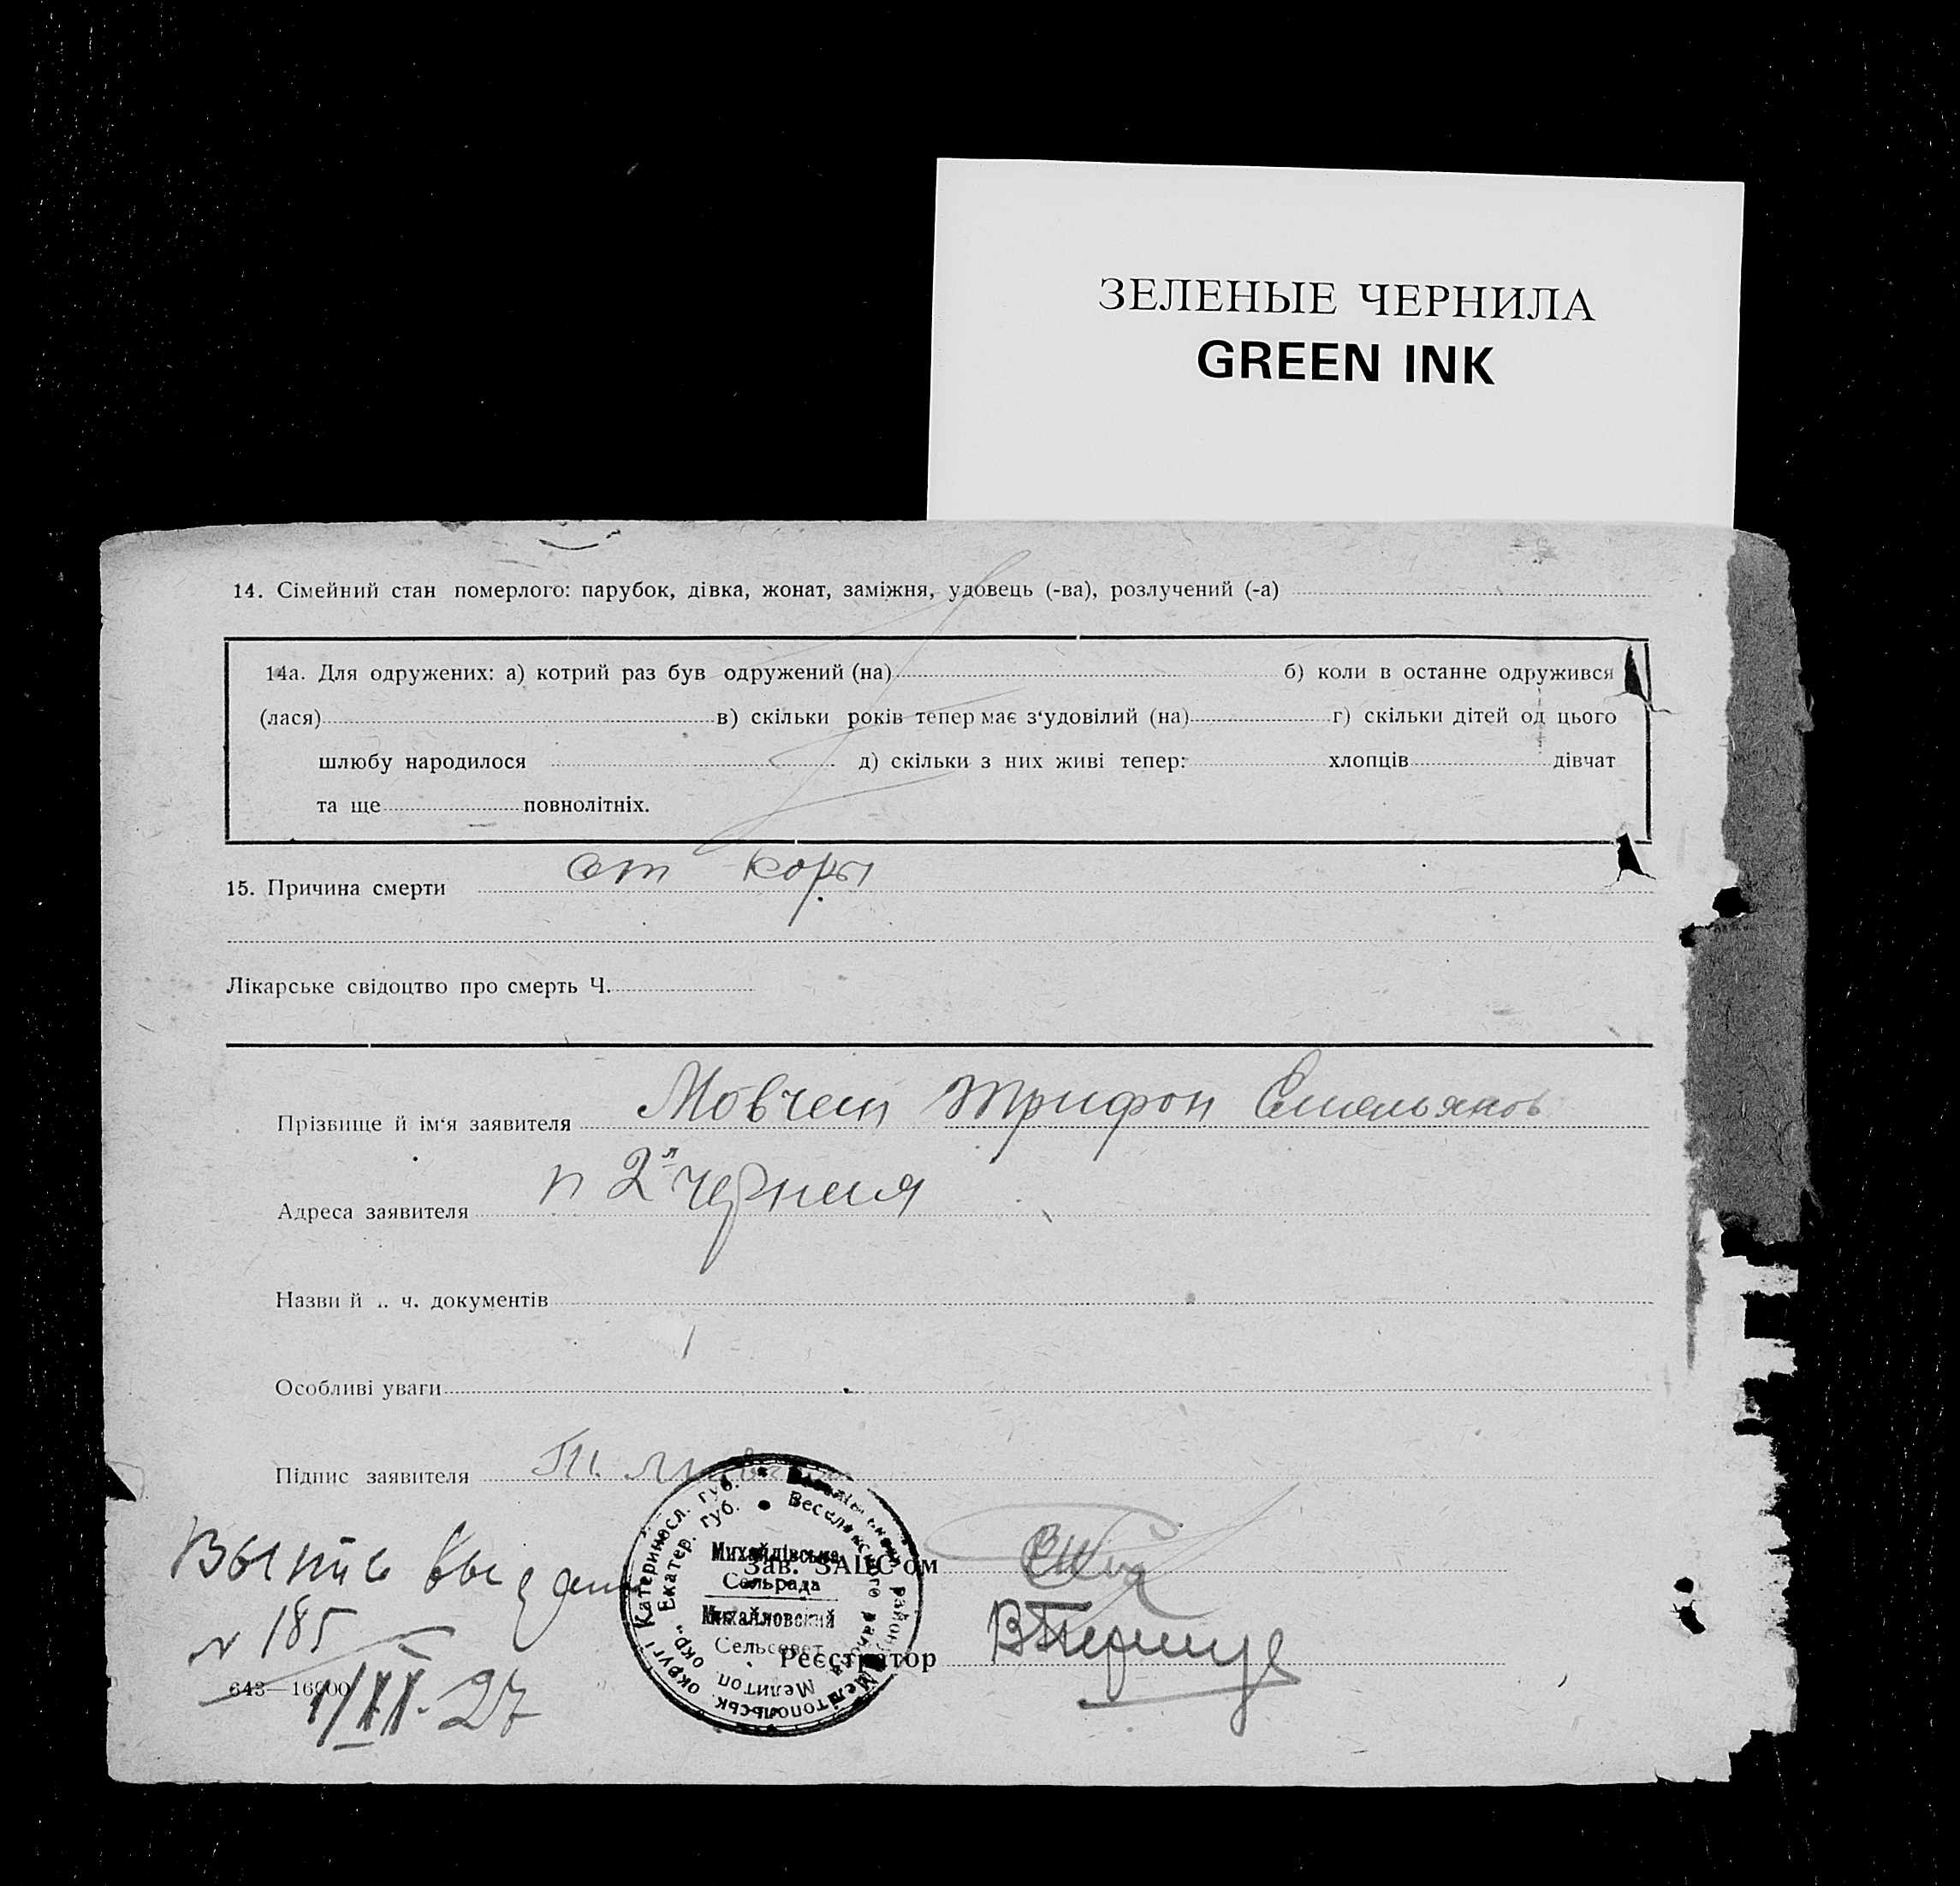 ЗЕЛЕНЫЕ ЧЕРНИЛА
GREEN INK
14. Сімейний стан померлого: парубок, дівка, жонат, заміжня, удовець (-ва), розлучений (-а)
14а. Для одружених: а) котрий раз був одружений (на) б) коли в останне одружився
(лася) в) скільки років тепер має з‘удовілий (на) г) скільки дітей од цього
шлюбу народилося д) скільки з них живі тепер: хлопців дівчат
та ще повнолітніх.
15. Причина смерти от коры
Лікарське свідоцтво про смерть Ч.
Прізвище й ім‘я заявителя Мовчан Трифон Емельянов
Адреса заявителя п 2я
Назви й .. ч. документів
Особливі уваги
Підпис заявителя Т.
Зав. ЗАЦС‘ом
Реєстратор
N 185
643—16000
1/XI-27
Михайлівська
Сельрада
Михайловский
Сельсовет
Мелітопольськ. округі Катеринюсл. губ.
Веселовского района Мелитоп. окр. Екатер. губ.